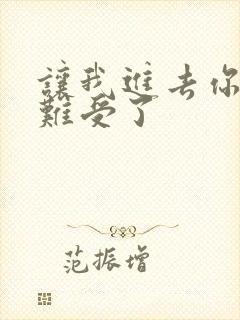 讓我進去你
難受了
范振增